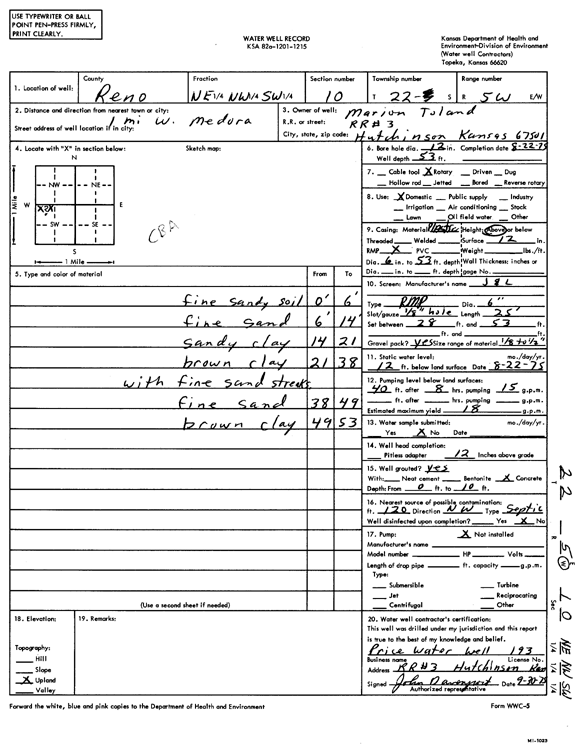 USE TYPEWRITER OR BALL
POINT PEN-PRESS FIRMLY,
PRINT CLEARLY.
WATER WELL RECORD
KSA 82a-1201-1215
Kansas Department of Health and
Environment-Division of Environment
(Water well Contractors)
Topeka, Kansas 66620
1. Location of well: County Reno Fraction NE 1/4 NW 1/4 SW 1/4 Section number 10 Township number T 22 S Range number R 5W E/W
2. Distance and direction from nearest town or city: 1 mi W. Medora
Street address of well location if in city:
3. Owner of well: Marion Toland
R.R. or street: RR#3
City, state, zip code: Hutchinson Kansas 67501
4. Locate with "X" in section below: Sketch map:
N
NW NE
W E
SW SE
S
1 Mile
1 Mile
CBA
6. Bore hole dia. 12 in. Completion date 8-22-75
Well depth 53 ft.
7. Cable tool X Rotary Driven Dug
Hollow rod Jetted Bored Reverse rotary
8. Use: X Domestic Public supply Industry
Irrigation Air conditioning Stock
Lawn Oil field water Other
9. Casing: Material Plastic Height: Above or below
Threaded Welded Surface 12 in.
RMP X PVC Weight lbs./ft.
Dia. 6 in. to 53 ft. depth Wall Thickness: inches or
Dia. in. to ft. depth gage No.
5. Type and color of material From To
fine sandy soil 0' 6'
fine sand 6' 14'
sandy clay 14 21
brown clay 21 38
with fine sand streeks
fine sand 38 49
brown clay 49 53
(Use a second sheet if needed)
10. Screen: Manufacturer's name J&L
Type RMP Dia. 6"
Slot/gauze 1/8" hole Length 25'
Set between 28 ft. and 53 ft.
ft. and ft.
Gravel pack? yes Size range of material 1/8 to 1/2"
11. Static water level: mo./day/yr.
12 ft. below land surface Date 8-22-75
12. Pumping level below land surfaces:
40 ft. after 8 hrs. pumping 15 g.p.m.
ft. after hrs. pumping g.p.m.
Estimated maximum yield 18 g.p.m.
13. Water sample submitted: mo./day/yr.
Yes X No Date
14. Well head completion:
Pitless adapter 12 Inches above grade
15. Well grouted? yes
With: Neat cement Bentonite X Concrete
Depth: From 0 ft. to 10 ft.
16. Nearest source of possible contamination:
ft. 120 Direction NW Type Septic
Well disinfected upon completion? Yes X No
17. Pump: X Not installed
Manufacturer's name
Model number HP Volts
Length of drop pipe ft. capacity g.p.m.
Type:
Submersible Turbine
Jet Reciprocating
Centrifugal Other
18. Elevation:
Topography:
Hill
Slope
X Upland
Valley
19. Remarks:
20. Water well contractor's certification:
This well was drilled under my jurisdiction and this report
is true to the best of my knowledge and belief.
Price Water Well 193
Business name License No.
Address RR#3 Hutchinson
Signed John Davenport Date 9-30-75
Authorized representative
T 22 - R 5 E W Sec 10 NE 1/4 NW 1/4 SW 1/4
Forward the white, blue and pink copies to the Department of Health and Environment
Form WWC-5